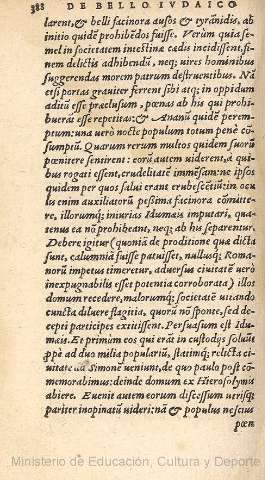 388 DE BELLO IVDAICO
larent, & belli facinora ausos & tyranidis, ab
initio quidẽ prohibẽdos fuisse. Verùm quia se-
mel in societatem intestinæ cædis incidissent, fi-
nem delictis adhibendũ, neq; uires hominibus
suggerendas morem patrum destruentibus. NA
etsi portas grauiter ferrent sibi atq; in oppidum
aditũ esse præclusum, pœnas ab his qui prohi-
buerãt esse repetitas: & Ananũ quidẽ perem-
ptum: una uerò nocte populum totum penè cõ-
sumptũ. Quarum rerum multos quidem suorũ
pœnitere sentirent: eorũ autem uiderent, a qui-
bus rogati essent, crudelitatẽ immẽsam: ne ipsos
quidem per quos salui erant erubescẽtiũ: in ocu
lis enim auxiliatorũ pessima facinora cõmitte-
re, illorumq; iniurias Idumæis imputari, qua-
tenus ea nõ prohibeant, neq; ab his separentur.
Debere igitur (quoniã de proditione quæ dicta
sunt, calumniã fuisse patuisset, nullusq; Roma-
norũ impetus timeretur, aduersus ciuitatẽ uerò
inexpugnabilis esset potentia corroborata) illos
domum recedere, malorumq; societatẽ uitando
cuncta diluere flagitia, quorũ nõ sponte, sed de-
cepti participes extitissent. Persuasum est Idu-
mæis. Et primùm eos qui erãt in custodijs soluũt
ppè ad duo milia populariũ, statimq; relicta ci-
uitate ad Simonẽ ueniunt, de quo paulo pòst cõ-
memorabimus: deinde domum ex Hierosolymis
abiere. Euenit autem eorum discessum utrisq;
pariter inopinatũ uideri: nã & populus nescius
pœn
Ministerio de Educación, Cultura y Deporte